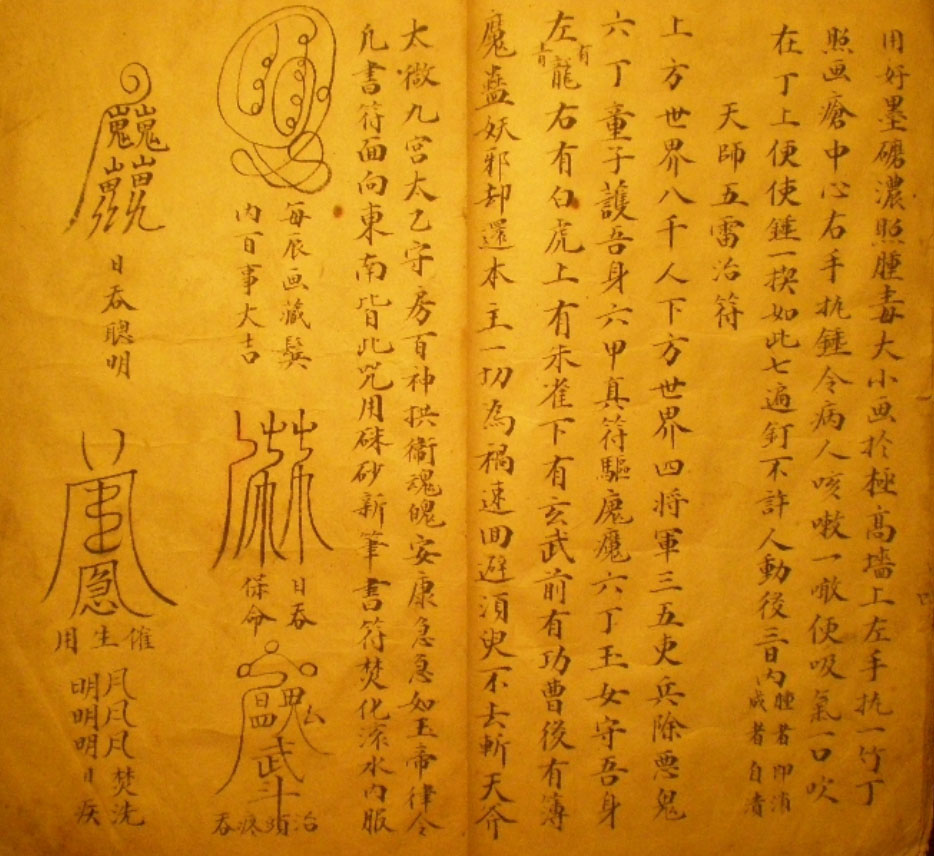 用好墨磨濃照腫毒大小画扵極髙墻上左手执一竹丁
照画瘡中心右手执錘令病人咳嗽一嗽便吸氣一口吹
在丁上便使錘一揳如此七遍釘不許人動後三日内腫者即消
成者自潰
天師五雷治符
上方世界八千人下方世界四将軍三五吏兵除悪鬼
六丁童子護吾身六甲真符驅魔魔六丁玉女守吾身
左有青龍右有白虎上有朱雀下有玄武前有功曹後有簿
魔蠱妖邪却還本主一切為禍速回避湏臾不去斬天斧
太微九宫太乙守房百神拱衛魂魄安康急急如玉帝律令
凢書符面向東南皆此咒用硃砂新筆書符焚化滚水内服
每辰画藏鬓
内百事大吉
日吞
保命
治頭疼吞
日吞聰明
催生用
焚洗
明明明目疾